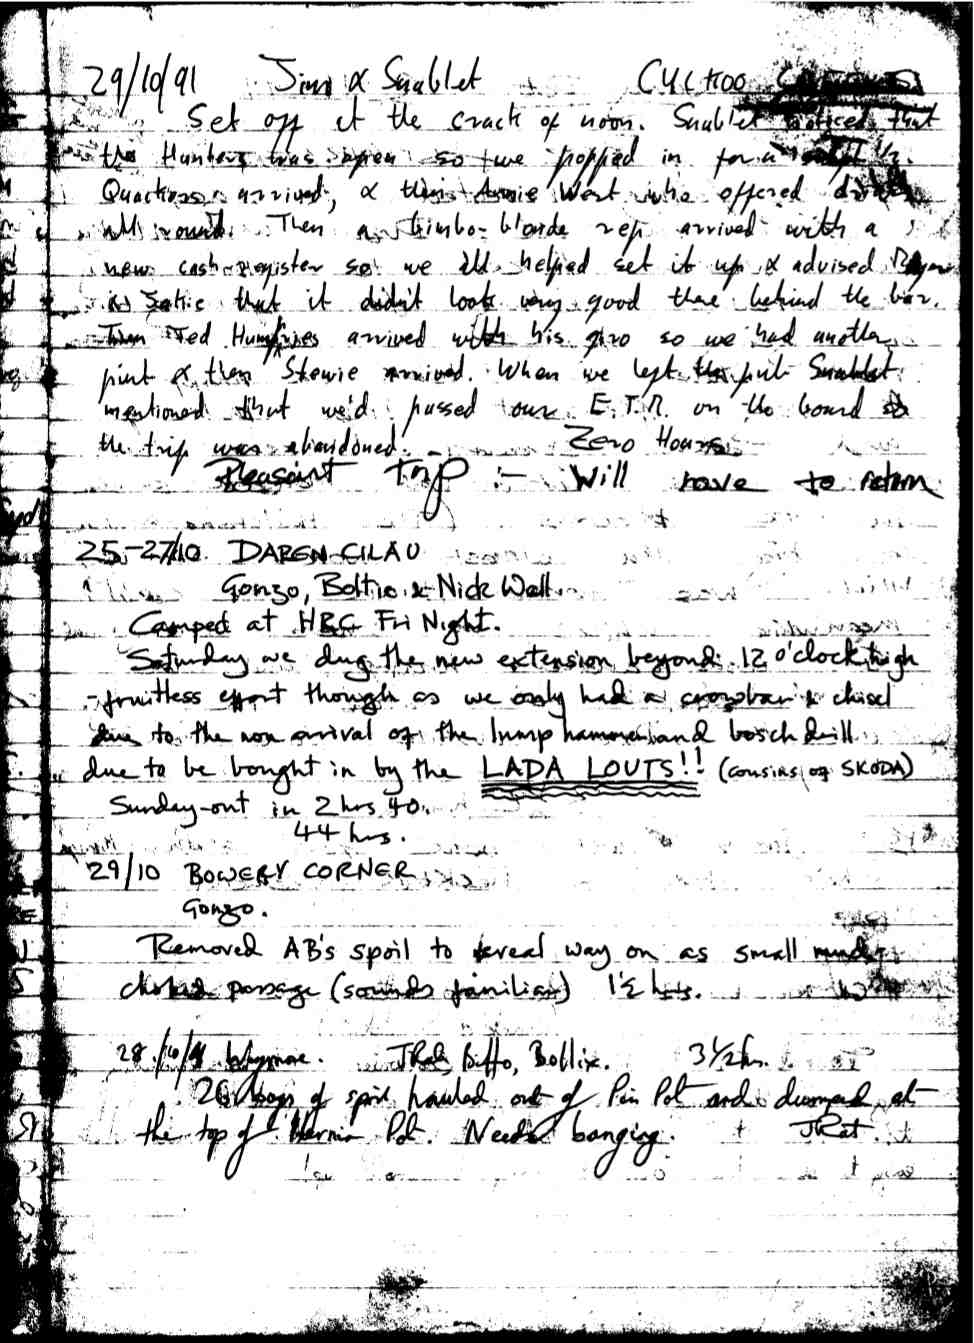 29/10/91 Jim & Snablet CUCKOO
Set off at the crack of noon. Snablet noticed that
the Hunters was open so we popped in for a 1/2.
Quackers arrived, & then Annie West who offered drinks
all round. Then a bimbo-blonde rep arrived with a
new cash-register so we all helped set it up & advised Roger
& Jackie that it didn't look very good there behind the bar.
Then Ted Humphries arrived with his giro so we had another
pint & then Stewie arrived. When we left the pub Snablet
mentioned that we'd passed our E.T.R. on the board so
the trip was abandoned. Zero Hours
Pleasant trip :- Will have to return
25-27/10. DAREN CILAU
Gonzo, Boltic & Nick Wall.
Camped at HRC Fri Night.
Saturday we dug the new extension beyond 12 o'clock high
- fruitless effort though as we only had a crowbar & chisel
due to the non arrival of the lump hammer and bosch drill
due to be bought in by the LADA LOUTS!! (cousins of SKODA)
Sunday-out in 2 hrs 40.
44 hrs.
29/10 BOWERY CORNER
Gonzo.
Removed AB's spoil to reveal way on as small mud
choked passage (sounds familiar) 1½ hrs.
28/10/91 Wigmore. JRat, Biffo, Bollix. 3½ hrs.
20 bags of spoil hauled out of Pin Pot and dumped at
the top of Hernia Pot. Needs banging. JRat.